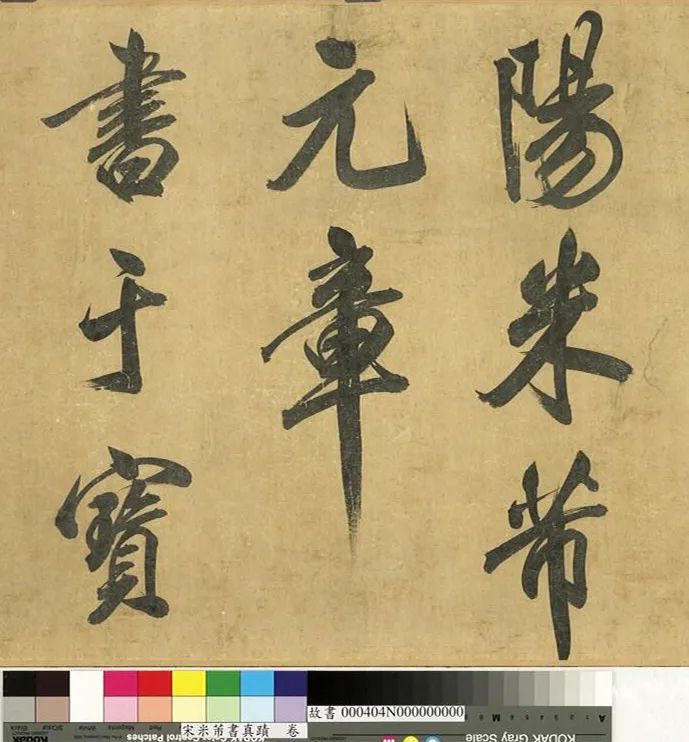 陽米芾
元章
書于寶
宋米芾書真蹟　卷
故書 000404N000000000
KODAK Gray Scale
KODAK Color Control Patches